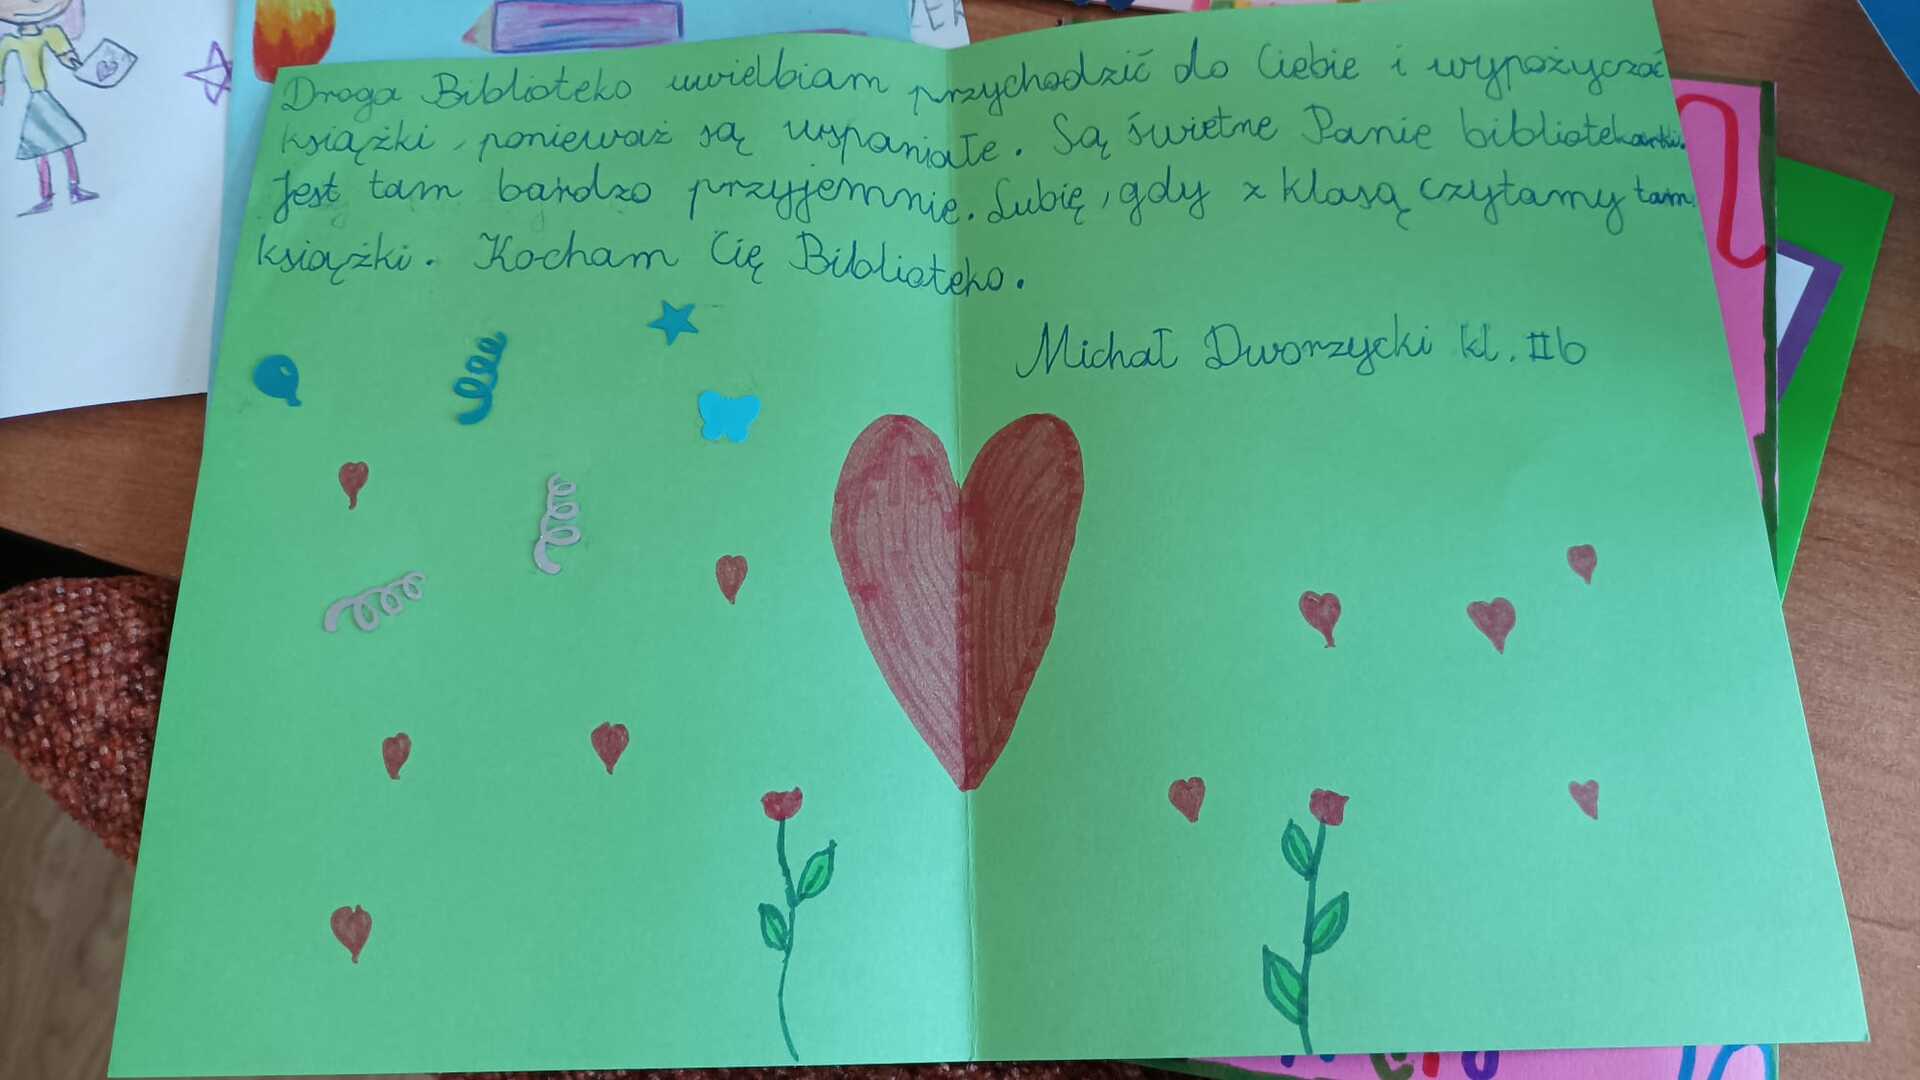 Droga Biblioteko uwielbiam przychodzić do Ciebie i wypożyczać
książki, ponieważ są wspaniałe. Są świetne Panie bibliotekarki.
Jest tam bardzo przyjemnie. Lubię, gdy z klasą czytamy tam
książki. Kocham Cię Biblioteko.
Michał Dworzycki kl. IIb